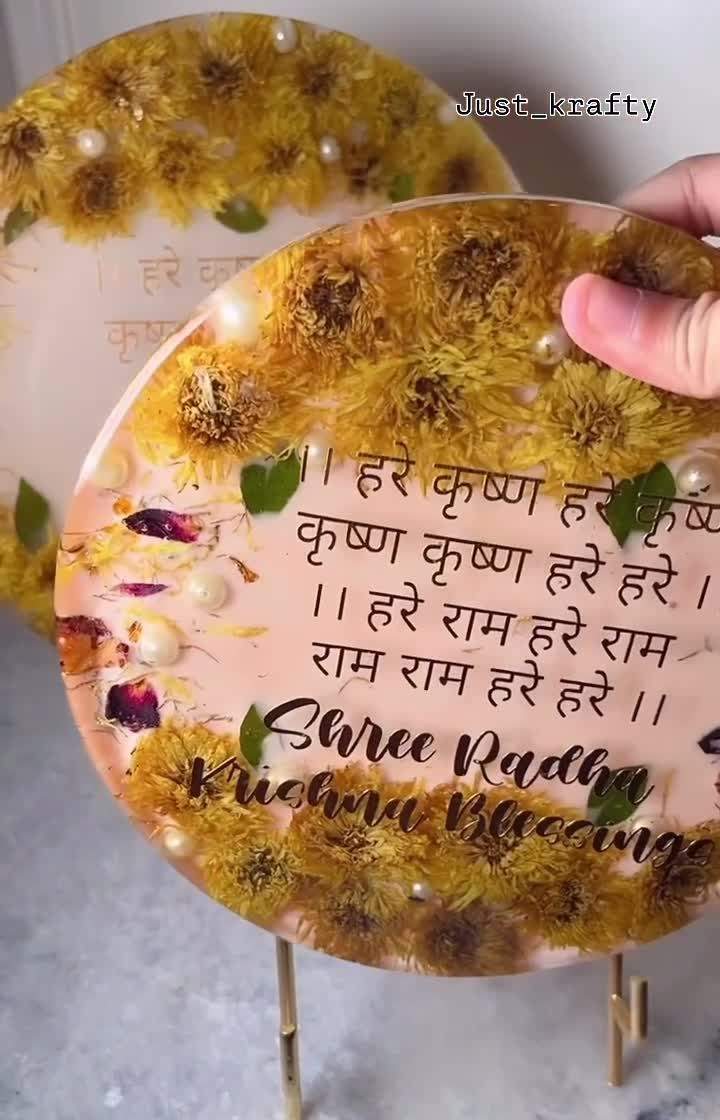 Just_krafty
।। हरे कृष्ण हरे कृष्ण
कृष्ण कृष्ण हरे हरे ।
।। हरे राम हरे राम
राम राम हरे हरे ।।
Shree Radha
Krishna Blessings
हरे
कृष्ण